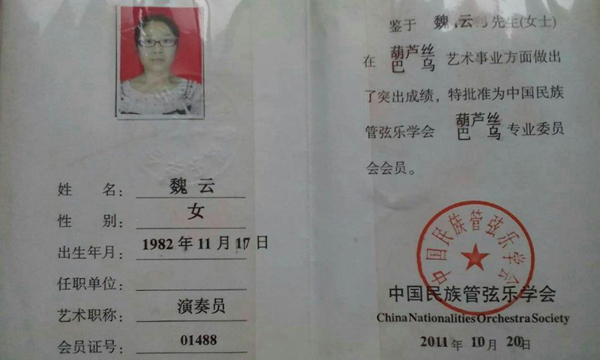 姓 名： 魏 云
性 别： 女
出生年月： 1982 年 11 月 17 日
任职单位：
艺术职称： 演奏员
会员证号： 01488
鉴于 魏 云 先生(女士)
在 葫芦丝 巴 乌 艺术事业方面做出
了突出成绩，特批准为中国民族
管弦乐学会 葫芦丝 巴 乌 专业委员
会会员。
中国民族管弦乐学会
中国民族管弦乐学会
China Nationalities Orchestra Society
2011 年 10 月 20 日